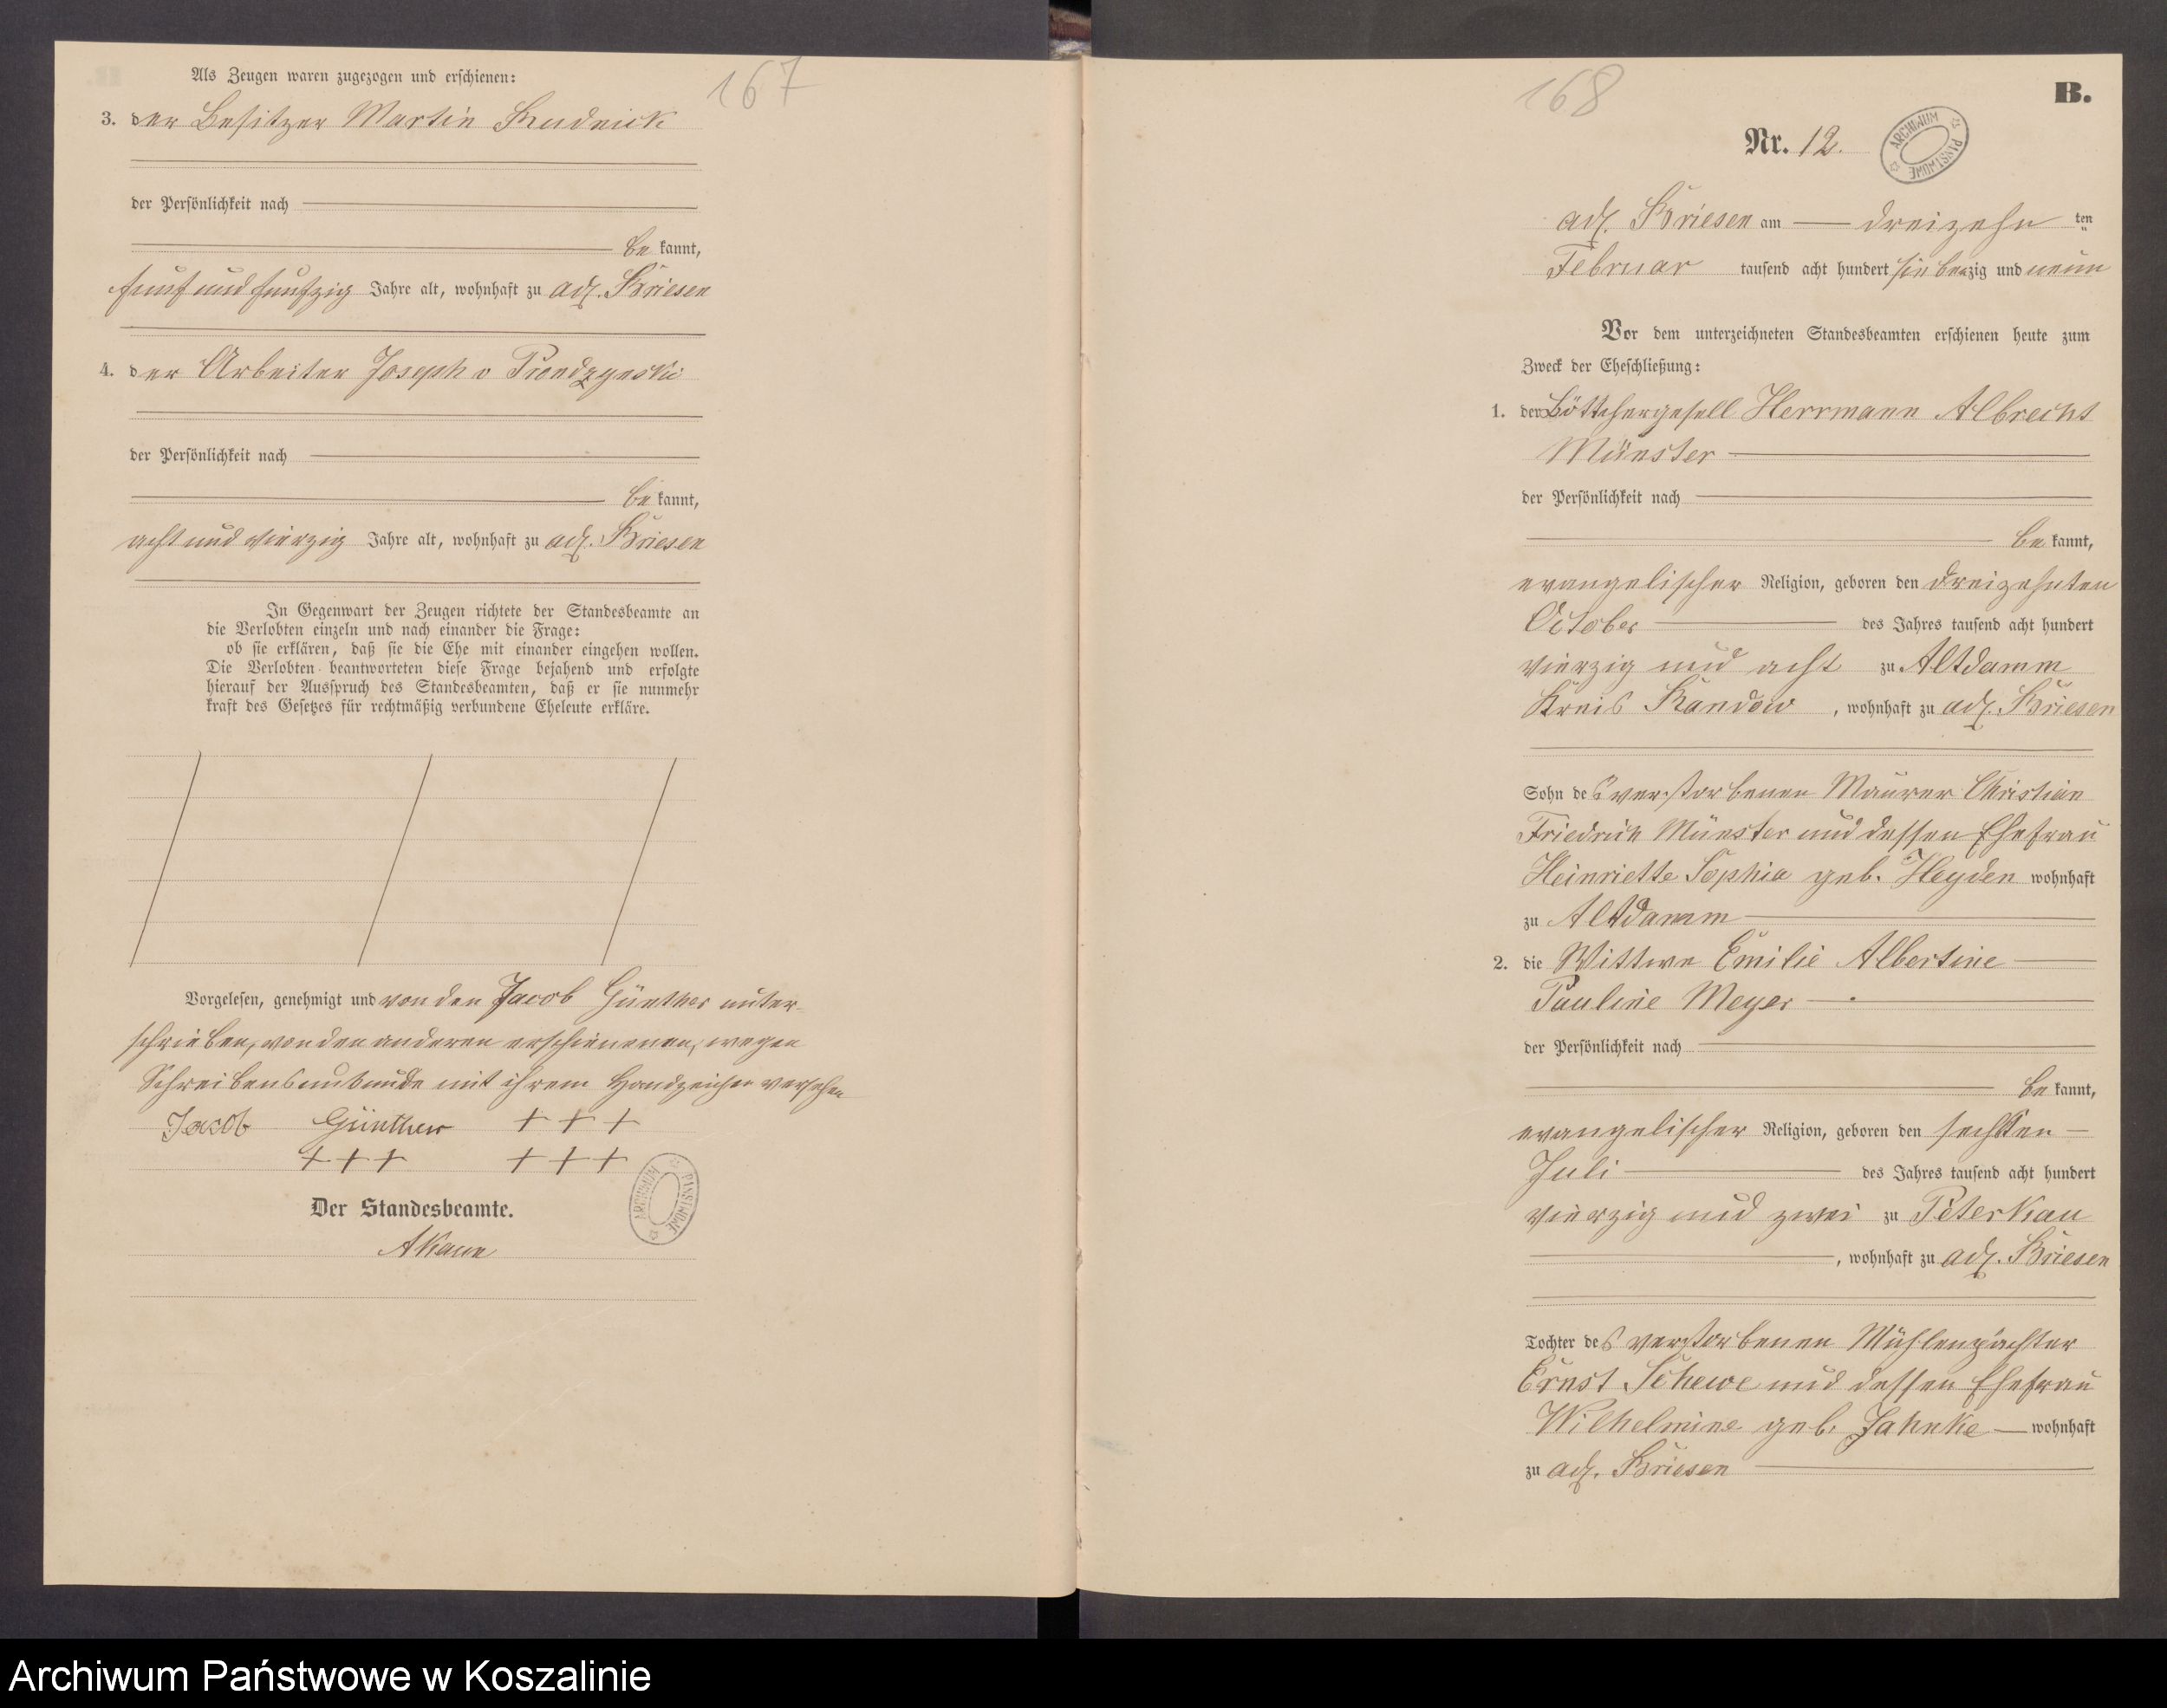 167
Als Zeugen waren zugezogen und erschienen:
3. der Besitzer Martin Rudnick
der Persönlichkeit nach
be kannt,
fünf und fünfzig Jahre alt, wohnhaft zu adl. Briesen
4. der Arbeiter Joseph v
der Persönlichkeit nach
be kannt,
acht und vierzig Jahre alt, wohnhaft zu adl. Briesen
In Gegenwart der Zeugen richtete der Standesbeamte an
die Verlobten einzeln und nach einander die Frage:
ob sie erklären, daß sie die Ehe mit einander eingehen wollen.
Die Verlobten beantworteten diese Frage bejahend und erfolgte
hierauf der Ausspruch des Standesbeamten, daß er sie nunmehr
kraft des Gesetzes für rechtmäßig verbundene Eheleute erkläre.
Vorgelesen, genehmigt und von den Jacob Günther unter-
schrieben, von den anderen erschienenen, wegen
Schreibensunkunde mit ihrem Handzeichen versehen
Jacob Günther + + +
+ + + + + +
Der Standesbeamte.
ARCHIWUM PAŃSTWOWE
168
B.
Nr. 12.
ARCHIWUM PAŃSTWOWE
adl. Briesen am dreizehn ten
Februar tausend acht hundert siebenzig und neun
Vor dem unterzeichneten Standesbeamten erschienen heute zum
Zweck der Eheschließung:
1. der Böttchergesell Herrmann Albrecht
Münster
der Persönlichkeit nach
be kannt,
evangelischer Religion, geboren den dreizehnten
October des Jahres tausend acht hundert
vierzig und acht zu Altdamm
Kreis Randow, wohnhaft zu adl. Briesen
Sohn des verstorbenen Maurer Christian
Friedrich Münster und dessen Ehefrau
Heinriette Sophia geb. Heyden wohnhaft
zu Altdamm
2. die Wittwe Emilie Albertine
Pauline Meyer
der Persönlichkeit nach
be kannt,
evangelischer Religion, geboren den sechsten
Juli des Jahres tausend acht hundert
vierzig und zwei zu Peterkau
, wohnhaft zu adl. Briesen
Tochter des verstorbenen Mühlenpächter
Ernst Schewe und dessen Ehefrau
Wilhelmine geb. Jahnke wohnhaft
zu adl. Briesen
Archiwum Państwowe w Koszalinie